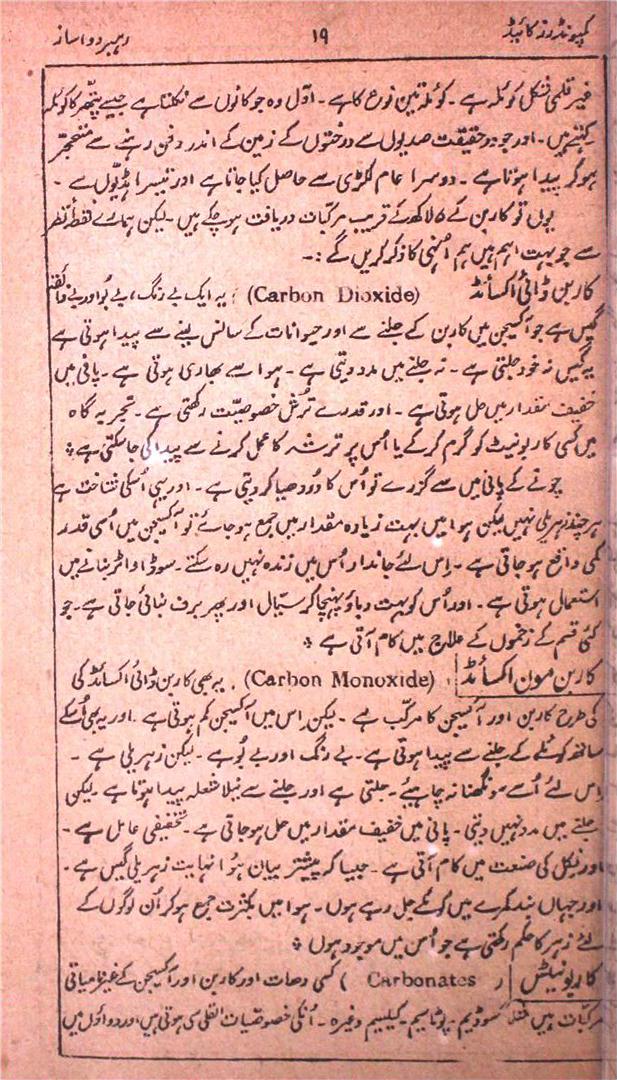 کمپونڈرز گائیڈ ۱۹ رہبر دواساز
غیر قلمی شکل کوئلہ ہے۔ کوئلہ تین نوع کا ہے۔ اوّل وہ جو کانوں سے نکلتا ہے جیسے پتھر کا کوئلہ
کہتے ہیں۔ اور جو در حقیقت صدیوں سے درختوں کے زمین کے اندر دفن رہنے سے متحجّر
ہو کر پیدا ہوتا ہے۔ دوسرا عام لکڑی سے حاصل کیا جاتا ہے اور تیسرا ہڈیوں سے۔
یوں تو کاربن کے ۵ لاکھ کے قریب مرکبات دریافت ہو چکے ہیں۔ لیکن ہمارے نقطۂ نظر
سے جو بہت اہم ہیں ہم اُنہی کا ذکر کریں گے :۔
کاربن ڈائی اکسائڈ (Carbon Dioxide) : یہ ایک بے رنگ، بے بُو اور بے ذائقہ
گیس ہے جو آکسیجن میں کاربن کے جلنے سے اور حیوانات کے سانس لینے سے پیدا ہوتی ہے
یہ گیس نہ خود جلتی ہے۔ نہ جلنے میں مدد دیتی ہے۔ ہوا سے بھاری ہوتی ہے۔ پانی میں
خفیف مقدار میں حل ہوتی ہے۔ اور قدرے تُرش خصوصیّت رکھتی ہے۔ تجربہ گاہ
میں کسی کاربونیٹ کو گرم کرکے یا اُس پر ترشہ کا عمل کرنے سے پیدا کی جا سکتی ہے *
چونے کے پانی میں سے گزرے تو اُس کا دودھیا کر دیتی ہے۔ اور یہی اُسکی شناخت ہے
ہر چند زہریلی نہیں لیکن ہوا میں بہت زیادہ مقدار میں جمع ہو جائے تو آکسیجن میں اُسی قدر
کمی واقع ہو جاتی ہے۔ اِس لئے جاندار اُس میں زندہ نہیں رہ سکتے۔ سوڈا واٹر بنانے میں
استعمال ہوتی ہے۔ اور اُس کو بہت دباؤ پہنچا کر سیّال اور پھر برف بنائی جاتی ہے۔ جو
کئی قسم کے زخموں کے علاج میں کام آتی ہے *
کاربن مون اکسائڈ (Carbon Monoxide) . یہ بھی کاربن ڈائی اکسائڈ کی
کی طرح کاربن اور آکسیجن کا مرکّب ہے۔ لیکن اِس میں آکسیجن کم ہوتی ہے۔ اور یہ بھی اُسکے
ساتھ کوئلے کے جلنے سے پیدا ہوتی ہے۔ بے رنگ اور بے بُو ہے۔ لیکن زہریلی ہے۔
اِس لئے اُسے سونگھنا نہ چاہیئے۔ جلتی ہے اور جلنے سے نیلا شعلہ پیدا ہوتا ہے۔ لیکن
جلنے میں مدد نہیں دیتی۔ پانی میں خفیف مقدار میں حل ہو جاتی ہے۔ تخفیفی عامل ہے۔
اور نیکل کی صنعت میں کام آتی ہے۔ جیسا کہ پیشتر بیان ہُوا نہایت زہریلی گیس ہے۔
اور جہاں بند کمرے میں کوئلے جل رہے ہوں۔ ہوا میں بکثرت جمع ہو کر اُن لوگوں کے
لئے زہر کا حکم رکھتی ہے جو اُس میں موجود ہوں *
کاربونیٹس ( Carbonates ) کسی دھات اور کاربن اور آکسیجن کے غیر نامیاتی
مرکبات ہیں مثلاً سوڈیم۔ پوٹاسیم۔ کیلسیم وغیرہ۔ اُنکی خصوصیات القلی سی ہوتی ہیں، اور دوائوں میں